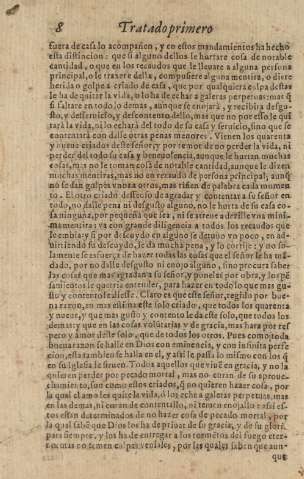 8 Tratado primero
fuera de casa lo acompañen, y en estos mandamientos ha hecho
esta distincion: que si alguno dellos le hurtare cosa de notable
cantidad, o que en los recaudos que le lleuare a alguna persona
principal, o le traxere della, compusiere alguna mentira, o diere
herida o golpe a criado de casa, que por qualquiera culpa destas
le ha de quitar la vida, o lo ha de echar a galeras perpetuas: mas q̃
si faltare en todo lo demas, aunque se enojarà, y recibira desgu-
sto, y desseruicio, y descontento dello, mas que no por esso le qui
tarà la vida, ni lo echarà del todo de su casa y seruicio, sino que le
contentarà con darle otras penas menores. Vienen los quarenta
y nueue criados deste señor, y por temor de no perder la vida, ni
perder del todo su casa y beneuolencia, aunque le hurtan muchas
cosas, mas no le toman cosa de notable cantidad, aunque le dizen
muchas mentiras, mas no en recaudo de persona principal, aunq̃
no se dan golpes vnos a otros, mas riñen de palabra cada momen
to. El otro criado desseoso de agradar y contentar a su señor en
todo, no dalle pena ni desgusto alguno, no le hurta de su casa co-
sa ninguna, por pequeña que sea, ni se atreue a dezille vna mini-
ma mentira: va con grande diligencia a todos los recaudos que
le embia: y si por descuydo en alguno se detuuo vn poco, en ad-
uirtiendo su descuydo, le da mucha pena, y lo corrije: y no so-
lamente se esfuerça de hazer todas las cosas que el señor le ha mã
dado, por no dalle desgusto ni enojo alguno, sino procura saber
las cosas que mas agradan a su señor, y ponelas por obra, y los pẽ
samientos le querria entender, para hazer en todo lo que mas gu-
sto y contento le diesse. Claro es que este señor, regido por bue-
na razon, en mas estima este solo criado, que todos los quarenta
y nueue, y que mas gusto y contento le da este solo, que todos los
demas: y que en las cosas voluntarias y de gracia, mas hara por res
peto y amor deste solo, que de todos los otros. Pues como toda
buena razon se halle en Dios con eminencia, y con infinita perfe
cion, esta tambien se halla en el, y assi le passa lo mismo con los q̃
en su Iglesia le siruen. Todos aquellos que viuẽ en gracia, y no la
quieren perder por pecado mortal, mas no curan de su aproue-
chamiento, son como estos criados, q̃ no quieren hazer cosa, por
la qual el amo les quite la vida, ò los eche a galeras perpetuas, mas
en las demas, ni curan de contentallo, ni temen enojallo: assi es-
tos estan determinados de no hazer cosa de pecado mortal, por
la qual sabẽ que Dios los ha de priuar de su gracia, y de su gloria
para siempre, y los ha de entregar a los tormẽtos del fuego eter-
no: mas no temen culpas veniales, por las quales saben que aun-
que